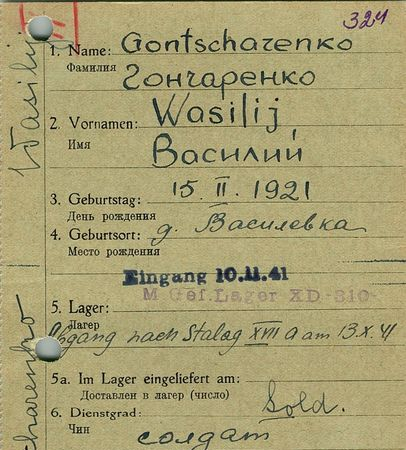 324
1. Name: Gontscharenko
Фамилия
Гончаренко
Wasilij
2. Vornamen:
Имя
Василий
3. Geburtstag: 15. II. 1921
День рождения
4. Geburtsort: д. Василевка
Место рождения
Eingang 10.11.41
M Gef. Lager XD-310-
5. Lager:
Лагерь
Abgang nach Stalag XVII A am 13.X.41
5a. Im Lager eingeliefert am:
Доставлен в лагерь (число)
6. Dienstgrad: Sold.
Чин солдат
Wasilij
charenko